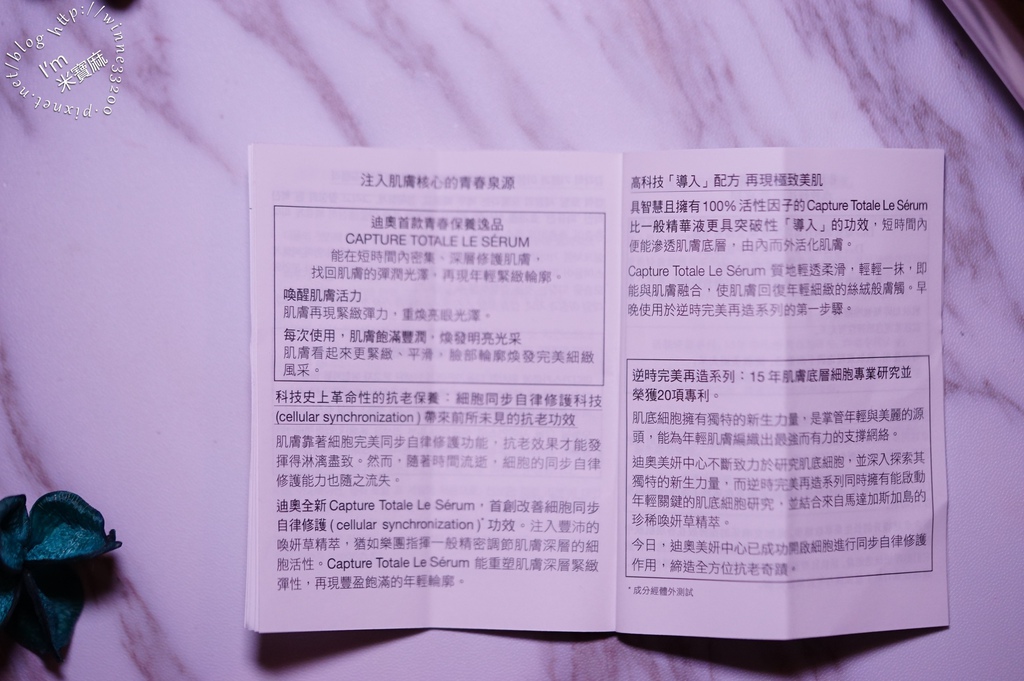 http://winne33200.pixnet.net/blog
I'm
米寶麻
注入肌膚核心的青春泉源
迪奧首款青春保養逸品
CAPTURE TOTALE LE SÉRUM
能在短時間內密集、深層修護肌膚，
找回肌膚的彈潤光澤，再現年輕緊緻輪廓。
喚醒肌膚活力
肌膚再現緊緻彈力，重煥亮眼光澤。
每次使用，肌膚飽滿豐潤，煥發明亮光采
肌膚看起來更緊緻、平滑，臉部輪廓煥發完美細緻
風采。
科技史上革命性的抗老保養：細胞同步自律修護科技
(cellular synchronization) 帶來前所未見的抗老功效
肌膚靠著細胞完美同步自律修護功能，抗老效果才能發
揮得淋漓盡致。然而，隨著時間流逝，細胞的同步自律
修護能力也隨之流失。
迪奧全新 Capture Totale Le Sérum，首創改善細胞同步
自律修護 (cellular synchronization)* 功效。注入豐沛的
喚妍草精萃，猶如樂團指揮一般精密調節肌膚深層的細
胞活性。Capture Totale Le Sérum 能重塑肌膚深層緊緻
彈性，再現豐盈飽滿的年輕輪廓。
高科技「導入」配方 再現極致美肌
具智慧且擁有100% 活性因子的 Capture Totale Le Sérum
比一般精華液更具突破性「導入」的功效，短時間內
便能滲透肌膚底層，由內而外活化肌膚。
Capture Totale Le Sérum 質地輕透柔滑，輕輕一抹，即
能與肌膚融合，使肌膚回復年輕細緻的絲絨般膚觸。早
晚使用於逆時完美再造系列的第一步驟。
逆時完美再造系列：15 年肌膚底層細胞專業研究並
榮獲20項專利。
肌底細胞擁有獨特的新生力量，是掌管年輕與美麗的源
頭，能為年輕肌膚編織出最強而有力的支撐網絡。
迪奧美妍中心不斷致力於研究肌底細胞，並深入探索其
獨特的新生力量，而逆時完美再造系列同時擁有能啟動
年輕關鍵的肌底細胞研究，並結合來自馬達加斯加島的
珍稀喚妍草精萃。
今日，迪奧美妍中心已成功開啟細胞進行同步自律修護
作用，締造全方位抗老奇蹟。
* 成分經體外測試